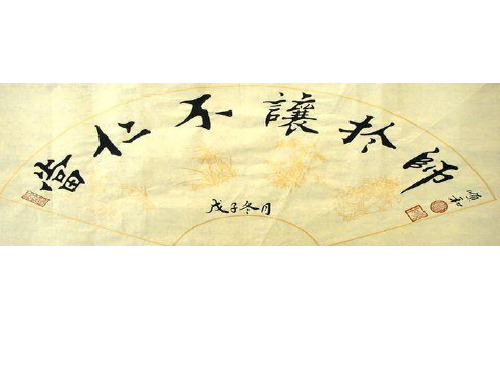 當仁不讓於師
戊子冬月